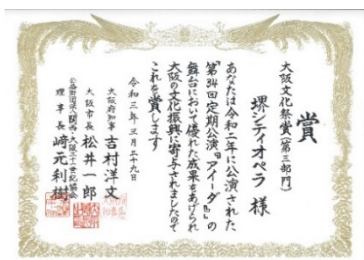 賞
大阪文化祭賞(第三部門)
堺シティオペラ 様
あなたは令和二年に公演された
「第34回定期公演『アイーダ』」の
舞台において優れた成果をあげられ
大阪の文化振興に寄与されましたので
これを賞します
令和三年三月二十九日
大阪府知事 吉村洋文
大阪市長 松井一郎
公益財団法人関西・大阪二十一世紀協会
理事長 﨑元利樹